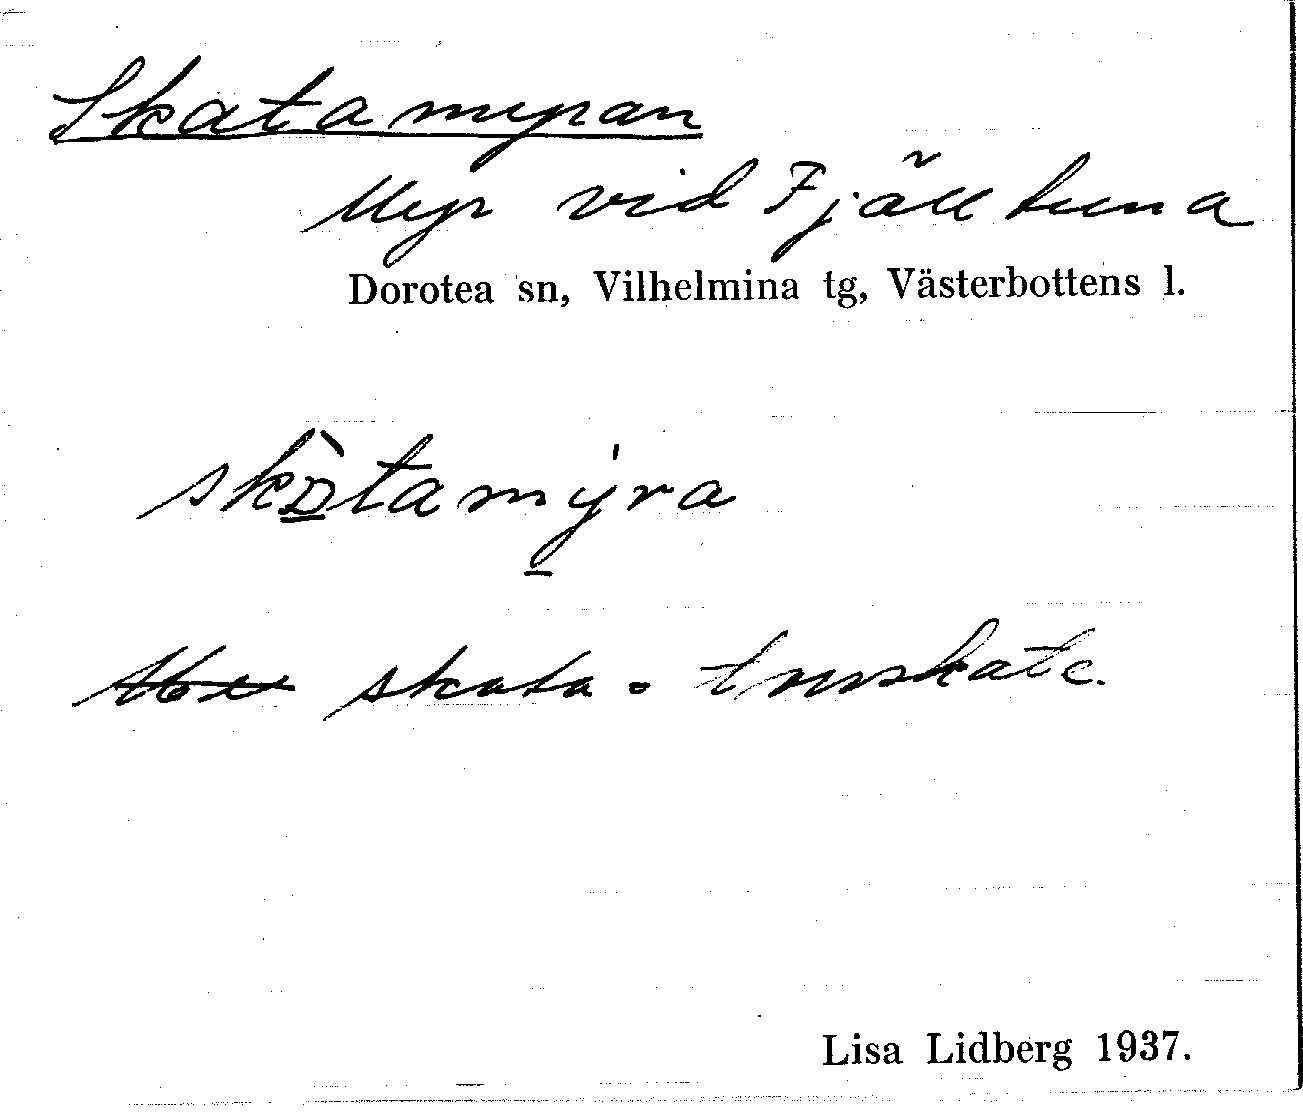 Skatamyran
Myr vid Fjälltuna
Dorotea sn, Vilhelmina tg, Västerbottens l.
skɒ̀tamýra
skata =
Lisa Lidberg 1937.